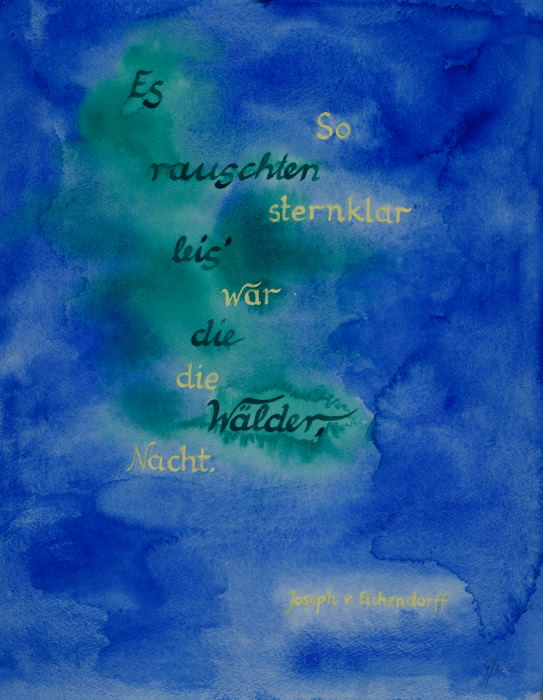 Es
So
rauschten
sternklar
leis'
war
die
die
Wälder,
Nacht.
Joseph v. Eichendorff